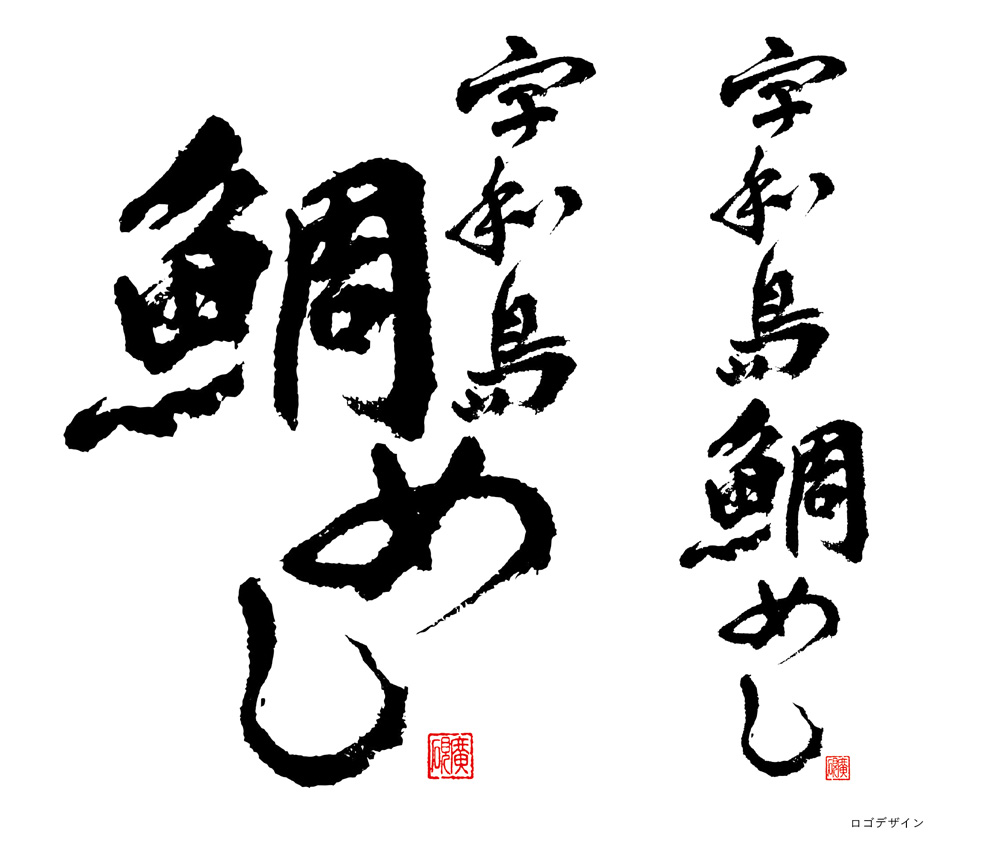 宇和島
鯛めし
廣硯
宇和島鯛めし
廣硯
ロゴデザイン